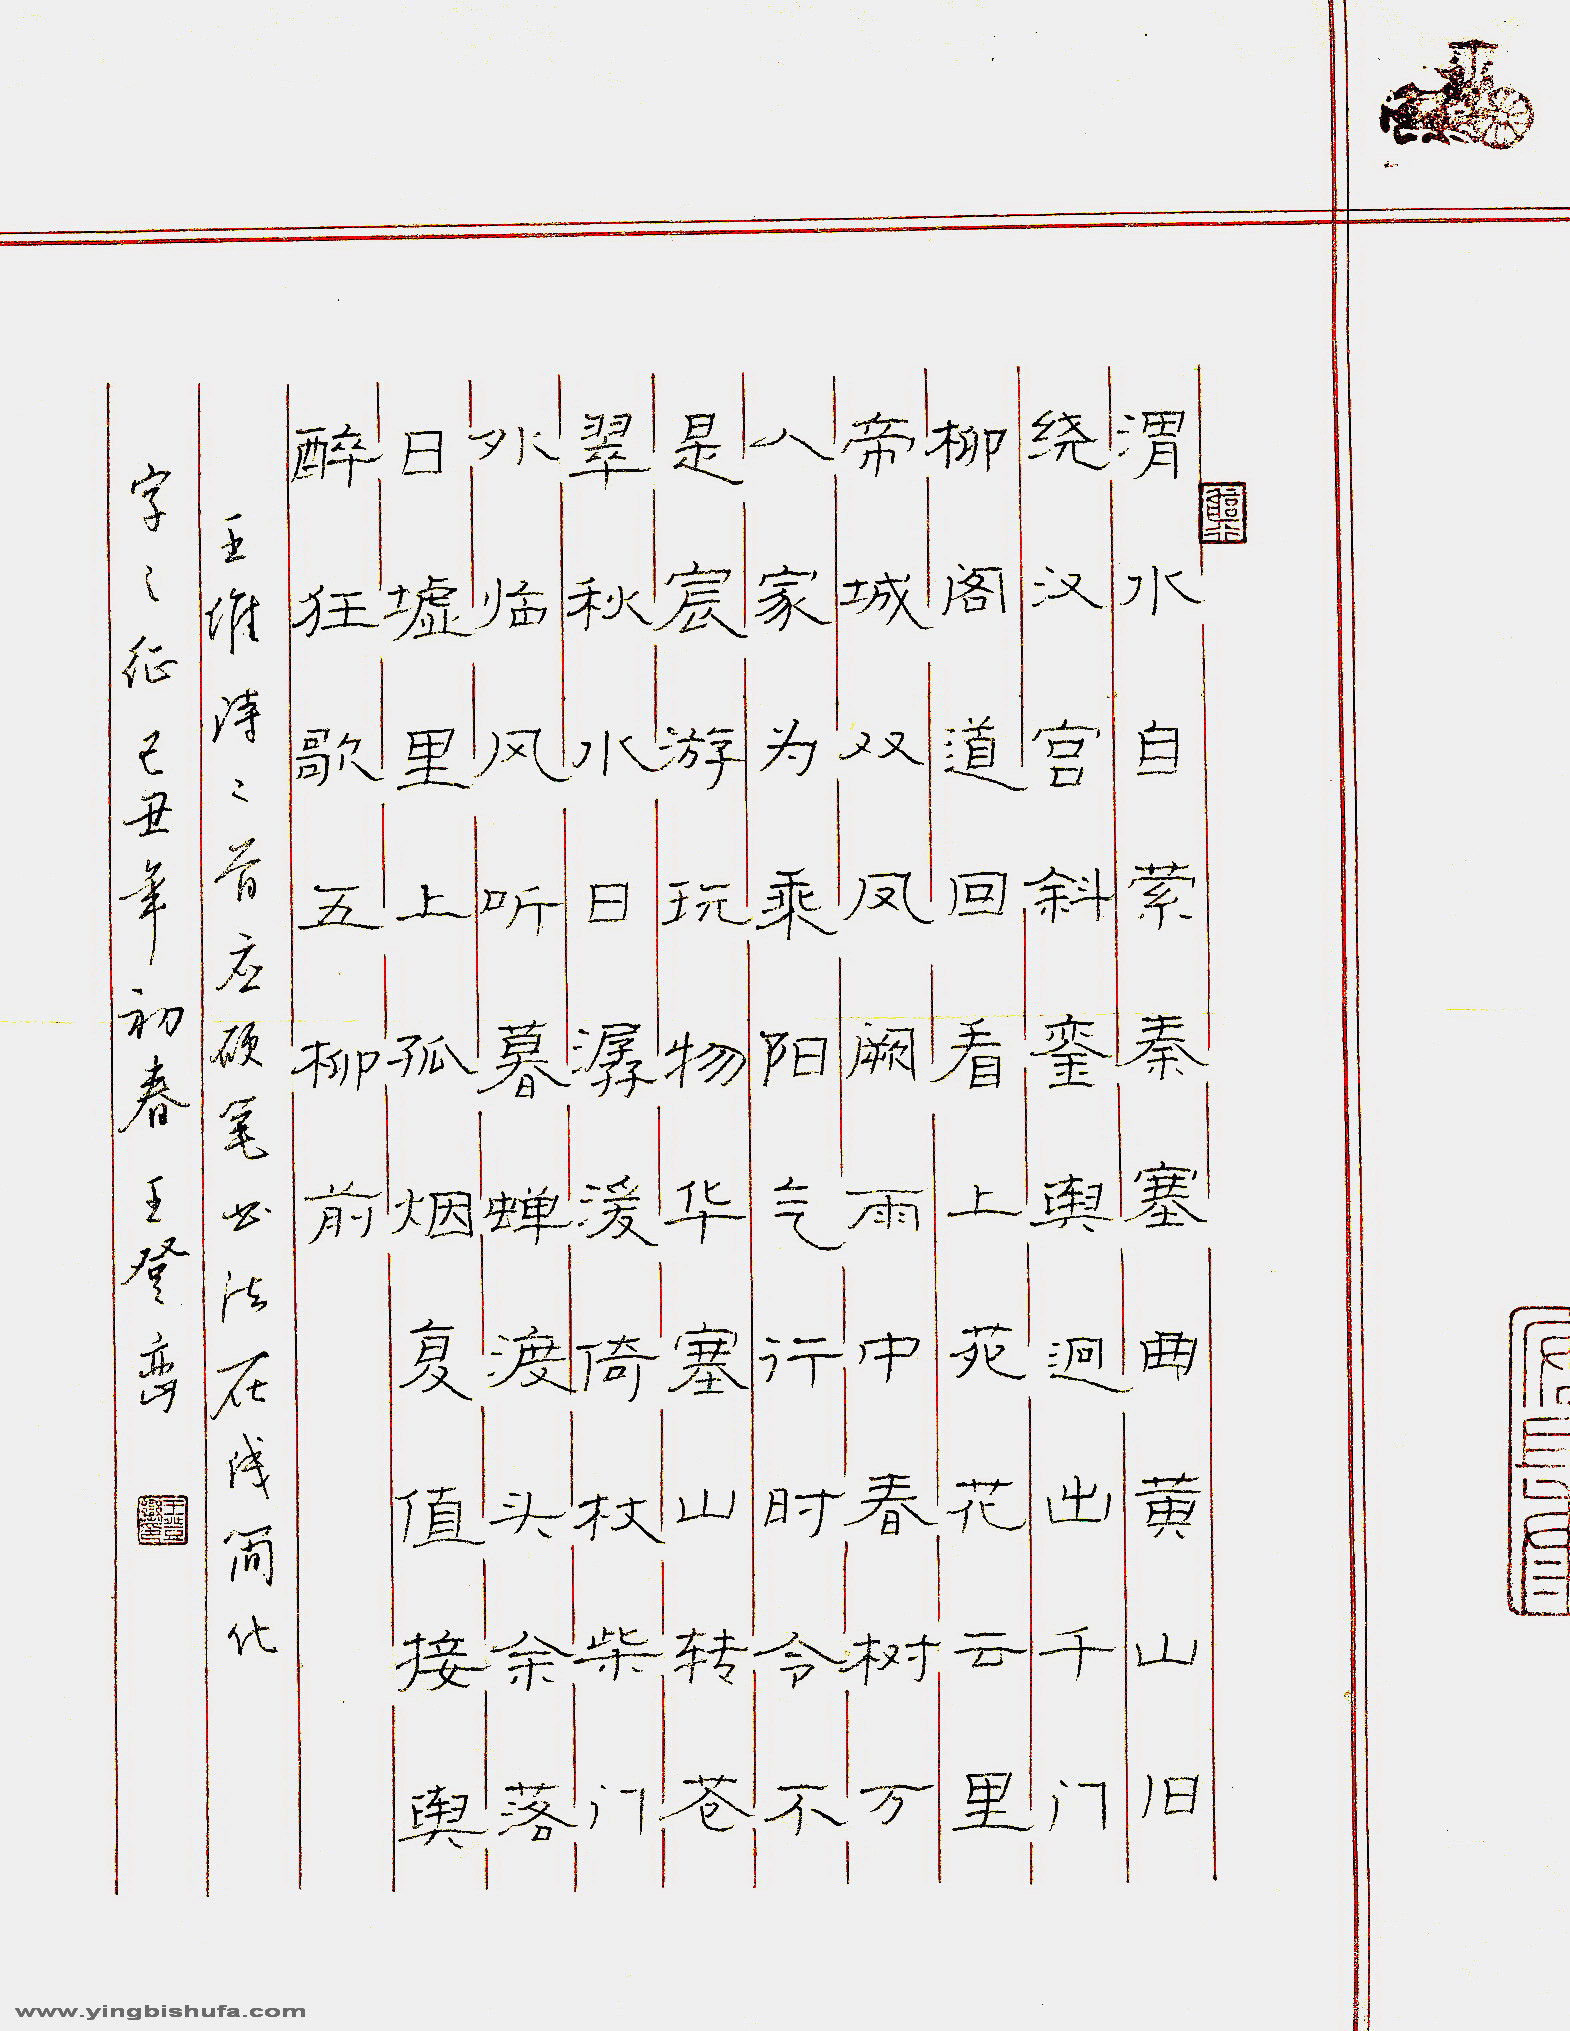 渭水自萦秦塞曲黄山旧
绕汉宫斜銮舆迥出千门
柳阁道回看上苑花云里
帝城双凤阙雨中春树万
人家为乘阳气行时令不
是宸游玩物华塞山转苍
翠秋水日潺湲倚杖柴门
外临风听暮蝉渡头余落
日墟里上孤烟复值接舆
醉狂歌五柳前
王维诗二首应硕笔书法在线简化
字之征己丑年初春王登峦
www.yingbishufa.com